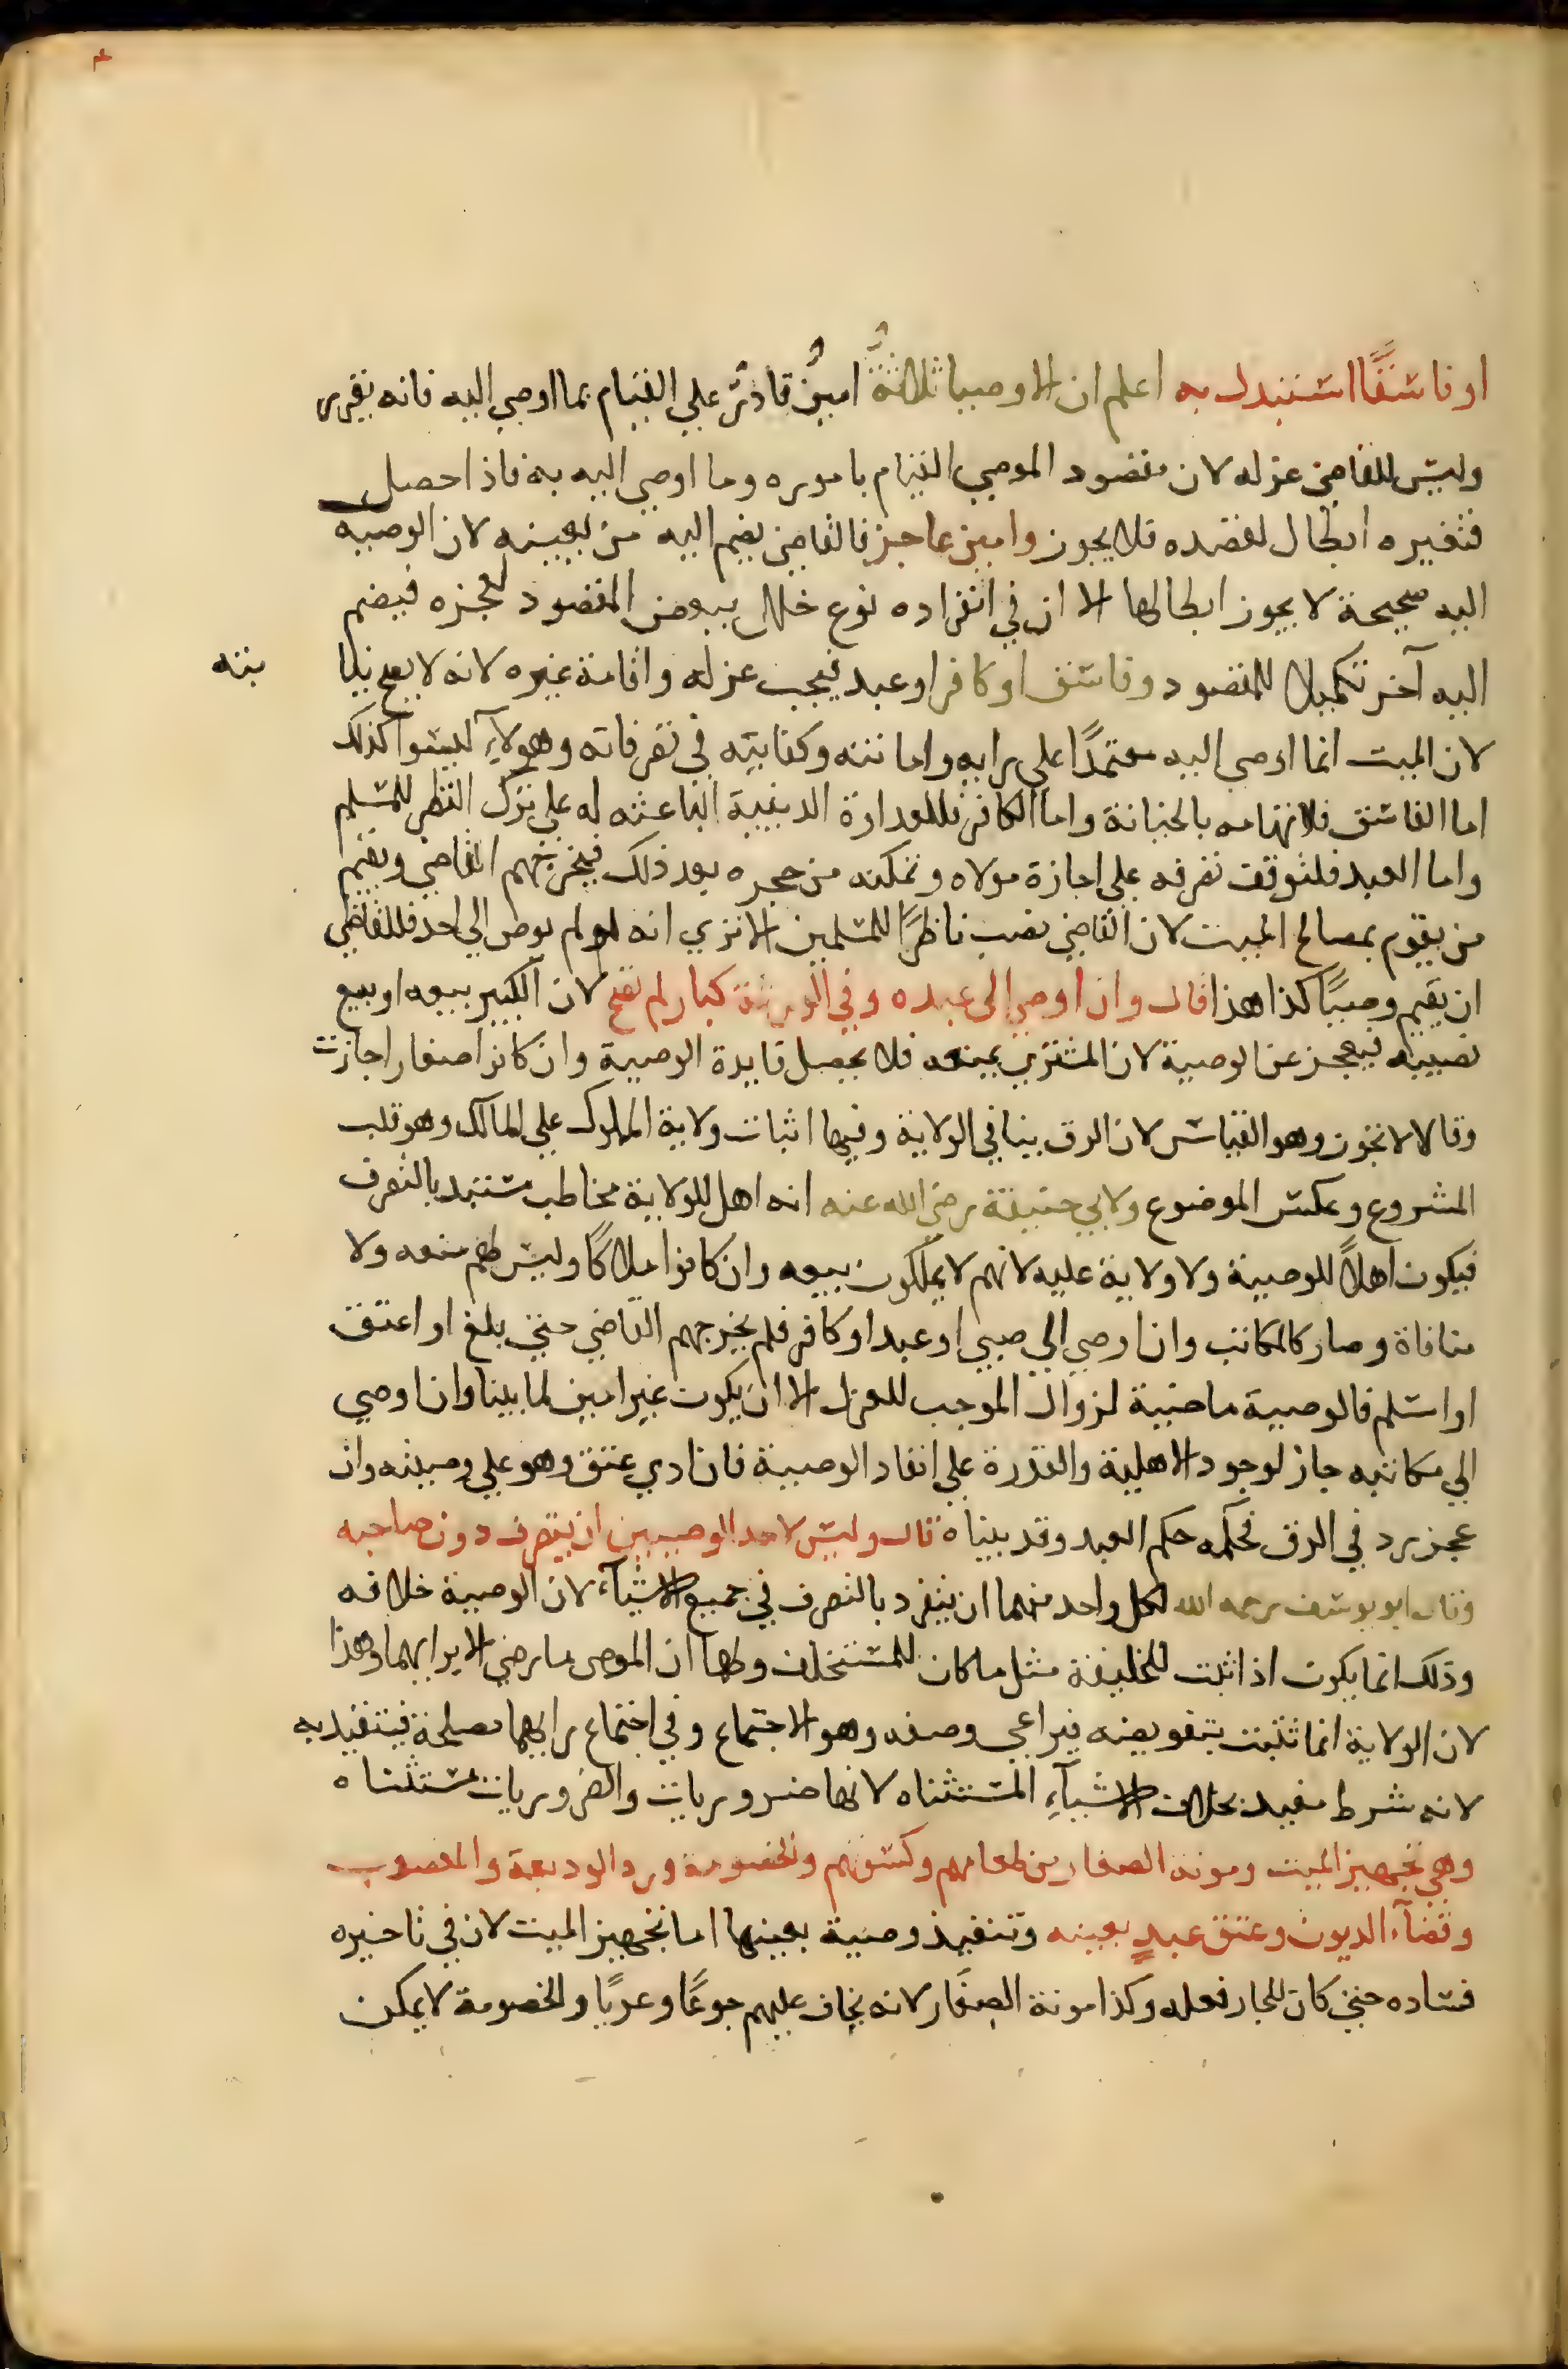 او فاسقًا استبدل به اعلم ان الاوصيا ثلاثةٌ امينٌ قادرٌ على القيام بما اوصي اليه فانه يقرر
وليس للقاضي عزله لان مقصود الموصي القيام باموره وما اوصى اليه به فاذا حصل
فتغييره ابطال لقصده فلا يجوز وامين عاجز فالقاضي يضم اليه من يعينه لان الوصيه
اليه صحيحة لا يجوز ابطالها الا ان في انفراده نوع خلل ببعض المقصود لعجزه فيضم
اليه آخر تكميلا للمقصود وفاسق او كافر او عبد فيجب عزله واقامة غيره لانه لا يصح نيا
بته
لان الميت انما اوصى اليه معتمدًا على رايه وامانته وكفايته في تصرفاته وهولآء ليسوا كذلك
اما الفاسق فلاتهامه بالخيانة واما الكافر فللعداوة الدينية الباعثه له على ترك النظر للمسلم
واما العبد فلتوقف تصرفه على اجازة مولاه وتمكنه من حجره بعد ذلك فيخرجهم القاضي ويقيم
من يقوم بمصالح الميت لان القاضي نصب ناظرًا للمسلمين الا تري انه لو لم يوص الي احد فللقاضي
ان يقيم وصيًا كذا هذا قال وان اوصى الى عبده وفي الورثة كبار لم تصح لان الكبير يبيعه او يبيع
نصيبه فيعجز عن الوصية لان المشتري يمنعه فلا يحصل فايدة الوصية وان كانوا صغارا جازت
وقالا لا تجوز وهو القياس لان الرق ينافي الولاية وفيها اثبات ولاية المملوك على المالك وهو قلب
المشروع وعكس الموضوع ولابي حنيفة رضي الله عنه انه اهل للولاية مخاطب مستبد بالتصرف
فيكون اهلًا للوصية ولا ولاية عليه لانهم لا يملكون بيعه وان كانوا ملاكًا وليس لهم منعه ولا
منافاة وصار كالمكاتب وان اوصي الي صبي او عبد او كافر فلم يخرجهم القاضي حتي بلغ او اعتق
او اسلم فالوصية ماضية لزوال الموجب للعزل الا ان يكون غير امين لما بينا وان اوصي
الي مكاتبه جاز لوجود الاهلية والقدرة علي انفاد الوصية فان ادي عتق وهو علي وصيته وان
عجز رد في الرق فحكمه حكم العبد وقد بيناه قال وليس لاحد الوصيين ان يتصرف دون صاحبه
وقال ابو يوسف رحمه الله لكل واحد منهما ان ينفرد بالتصرف في جميع الاشيآء لان الوصية خلافه
وذلك انما يكون اذا ثبت للخليفة مثل ما كان للمستخلف ولهما ان الموصى ما رضي الا برايهما وهذا
لان الولاية انما تثبت بتفويضه فيراعي وصفه وهو الاجتماع وفي اجتماع رايهما مصلحة فيتقيد به
لانه شرط مفيد بخلاف الاشيآءِ المستثناه لانها ضروريات والضروريات مستثناه
وهي تجهيز الميت ومونه الصغار من طعامهم وكسوتهم والخصومة ورد الوديعة والمغصوب
وقضآء الديون وعتق عبدٍ بعينه وتنفيذ وصية بعينها اما تجهيز الميت لان في تاخيره
فساده حتي كان للجار فعله وكذا مونة الصغار لانه يخاف عليهم جوعًا وعريًا والخصومة لا يمكن